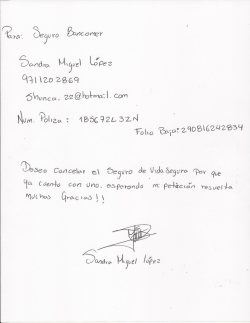 Para: Seguro Bancomer
Sandra Miguel López
9711202869
Shonca.22@hotmail.com
Num. Poliza: 185672L32N
Folio Baja: 290816242834
Deseo Cancelar el Seguro de Vida Segura por que
ya cuento con uno. esperando mi petición resuelta
muchas Gracias!!
Sandra Miguel López